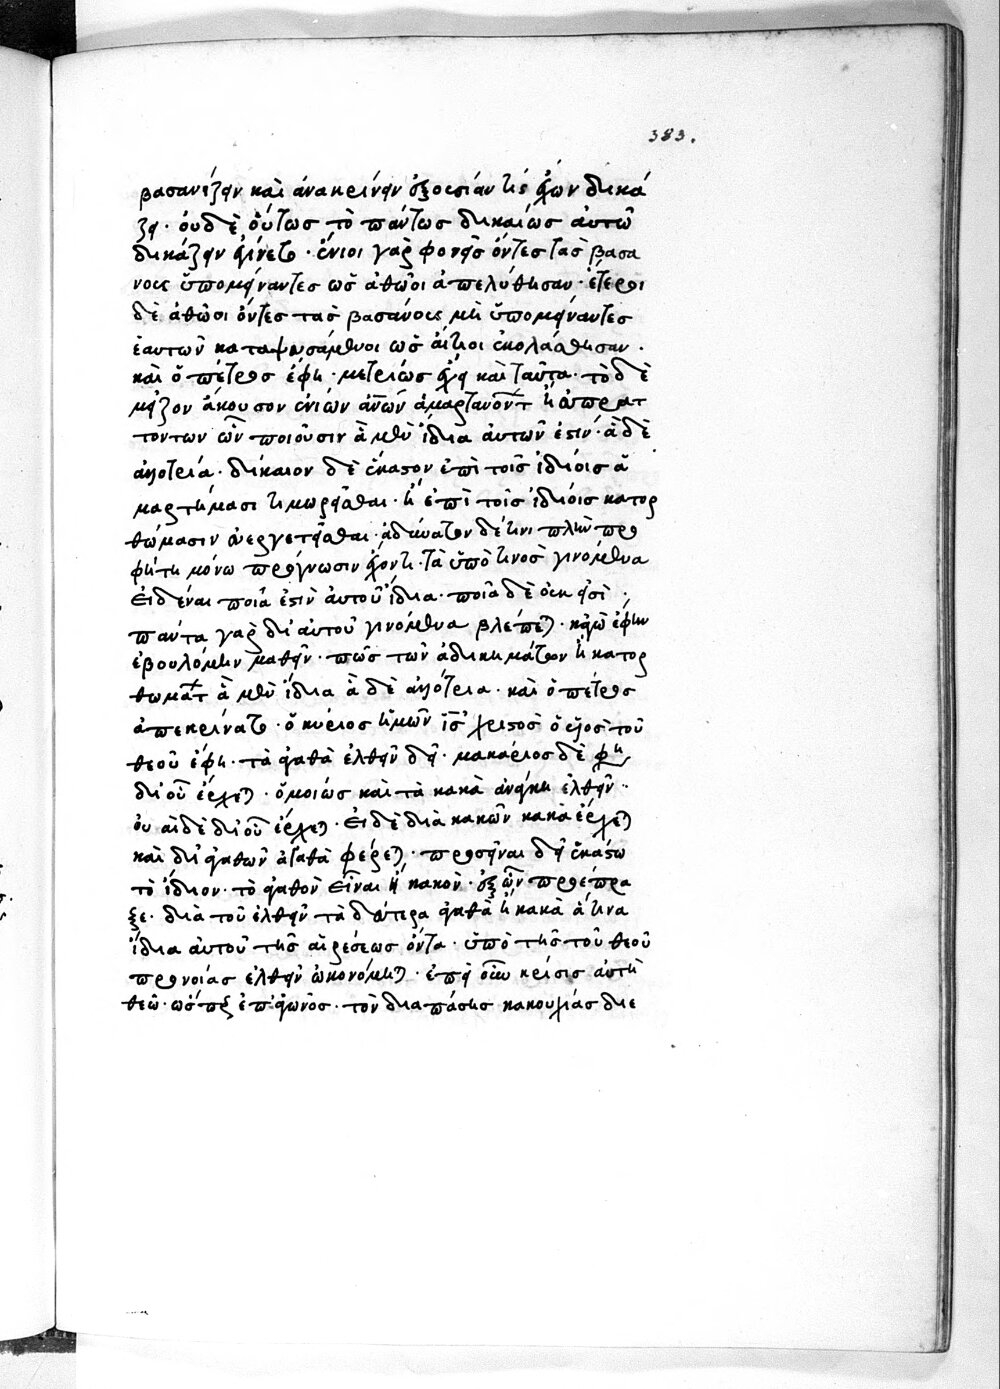 383.
βασανίζειν καὶ ἀνακρίνειν ἐξουσίαν τίς ἔχων δικά
ζει · οὐδὲ οὕτως τὸ πάντως δικαίως αὐτῶ
δικάζειν γίνεται · ἔνιοι γὰρ φονεῖς ὄντες τὰς βασά
νους ὑπομείναντες ὡς ἀθῶοι ἀπελύθησαν · ἕτεροι
δὲ ἀθῶοι ὄντες τὰς βασάνους μὴ ὑπομείναντες
ἑαυτῶν καταψευσάμενοι ὡς αἴτιοι ἐκολάσθησαν .
καὶ ὁ πέτρος ἔφη · μετρίως ἔχει καὶ ταῦτα · τὸ δὲ
μεῖζον ἄκουσον ἐνίων ἀν̅ων ἁμαρτανόντ ἢ εὐπρατ
τόντων ὧν ποιοῦσιν ἃ μὲν ἴδια αὐτῶν ἐστίν · ἃ δὲ
ἀλλότρια · δίκαιον δὲ ἕκαστον ἐπὶ τοῖς ἰδίοις ἁ
μαρτήμασι τιμωρεῖσθαι · ἢ ἐπὶ τοῖς ἰδίοις κατορ
θώμασιν εὐεργετεῖσθαι · ἀδύνατον δέ τινι πλὴν προ
φήτη μόνω πρόγνωσιν ἔχοντι · τὰ ὑπό τινος γινόμενα
εἰδέναι ποῖα ἐστὶν αὐτοῦ ἴδια · ποῖα δὲ οὐκ εἰσί ·
πάντα γὰρ δι' αὐτοῦ γινόμενα βλέπεται · κἀγὼ ἔφην
ἐβουλόμην μαθεῖν · πῶς τῶν ἀδικημάτων ἢ κατορ
θωμάτ ἃ μὲν ἴδια ἃ δὲ ἀλλότρια · καὶ ὁ πέτρος
ἀπεκρίνατο · ὁ κύριος ἡμῶν ἰ̅ς̅ χριστὸς ὁ υἱὸς τοῦ
θεοῦ ἔφη · τὰ ἀγαθὰ ἐλθεῖν δεῖ · μακάριος δὲ φη
δι' οὗ ἔρχεται · ὁμοίως καὶ τὰ κακὰ ἀνάγκη ἐλθεῖν ·
οὐαὶ δὲ δι' οὗ ἔρχεται · εἰ δὲ διὰ κακῶν κακὰ ἔρχεται
καὶ δι' ἀγαθῶν ἀγαθὰ φέρεται · προσεῖναι δεῖ ἑκάστω
τὸ ἴδιον · τὸ ἀγαθὸν εἶναι ἢ κακὸν · ἐξ ὧν προέπρα
ξε · διὰ τοῦ ἐλθεῖν τὰ δεύτερα ἀγαθὰ ἢ κακὰ ἅτινα
ἴδια αὐτοῦ τῆς αἱρέσεως ὄντα · ὑπὸ τῆς τοῦ θεοῦ
προνοίας ἐλθεῖν ὠκονόμηται · ἐπεὶ οὖν κρίσις αὕτη
θεῶ · ὥσπερ ἐπ' ἀγῶνος · τὸν διὰ πάσης κακουχίας διε